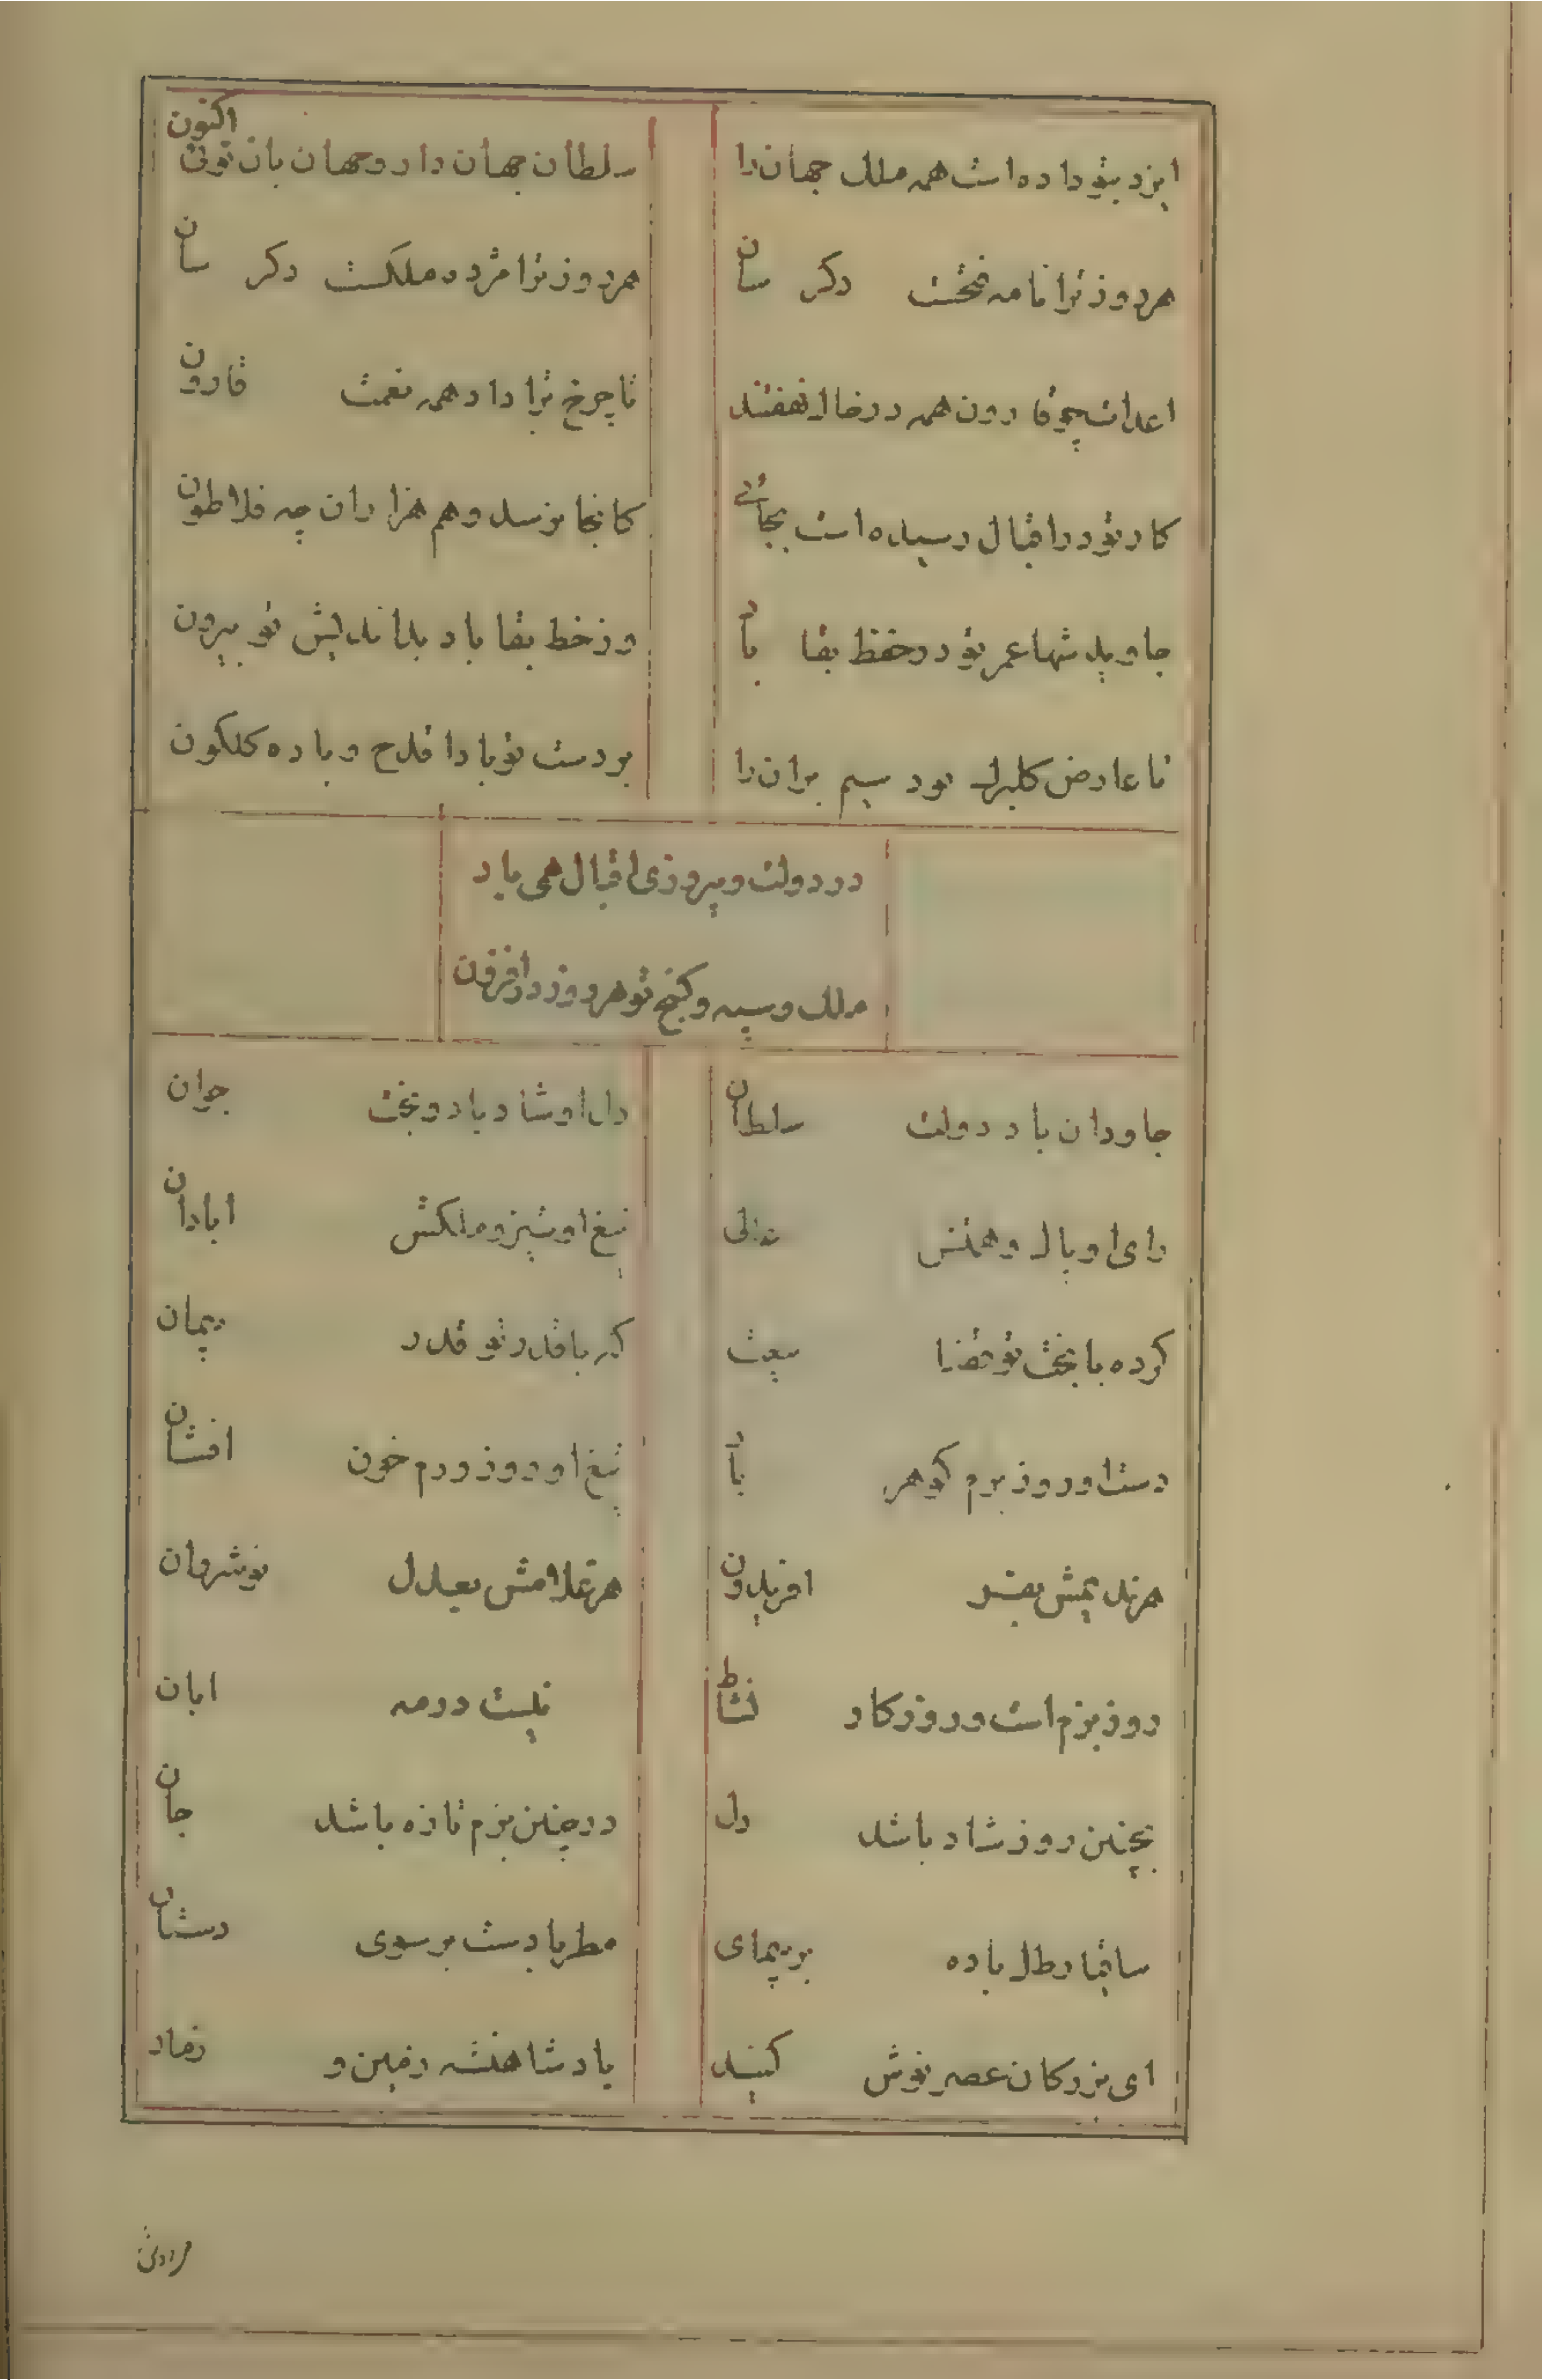 ایزد بتو داده است همه ملک جهان را
سلطان جهان دار و جهان بان توئی اکنون
هر روز ترا نامه فتحست دکر سان
هر روز ترا مژده ملکست دکر سان
اعدات چو قارون همه در خاک نهفتند
تا چرخ ترا داد همه نعمت قارون
کار تو در اقبال رسیده است بجائی
کانجا نرسد وهم هزاران چه فلاطون
جاوید شها عمر تو در حفظ بقا باد
وز خط بقا باد بداندیش تو بیرون
تا عارض کلبرک بود سیم بران را
بر دست تو بادا قدح و باده کلکون
در دولت و پیروزی اقبال همی باد
ملک و سپه و کنج تو هر روز در افزون
جاودان باد دولت سلطان
دل او شاد باد و بخت جوان
رای او پاک و همتش عالی
تیغ او تیز و ملکش ابادان
کرده با بخت تو قضا بیعت
کرده با قدر تو قدر پیمان
دست او روز بزم کوهر بار
تیغ او روز رزم خون افشان
هر ندیمش بفر افریدون
هر غلامش بعدل نوشروان
روز بزم است و روزکار نشاط
نیست در مه ابان
بچنین روز شاد باشد دل
در چنین بزم تازه باشد جان
ساقیا رطل باده بر پیمای
مطربا دست بر سوی دستان
ای بزرکان عصر نوش کنید
یاد شاهنشه زمین و زمان